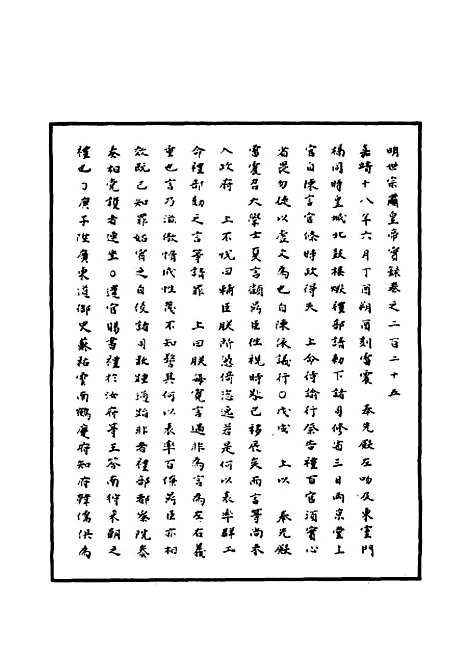 明世宗肅皇帝實錄卷之二百二十五
嘉靖十八年六月丁酉朔酉刻雷震　奉先殿左吻及東室門
槅同時皇城北鼓樓燬禮部請勅下諸司修省三日兩京堂上
官自陳言官條時政得失　上命待諭行祭告禮百官須實心
省畏勿徒以虛文為也自陳依議行○戊戌　上以　奉先殿
雷變召大學士夏言顧鼎臣性視時歘已移晷矣而言等尚未
入政府　上不悅曰輔臣朕所憑倚恣逸若是何以表率群工
命禮部劾之言等請罪　上曰朕每寬言過非為言為左右義
重也言乃滋傲惰成性茂不知警具何以表率百僚鼎臣亦相
效既已知罪姑宥之自後諸司敢踵蹈非者禮部都察院奏
奏相党護者連坐○遣官賜書禮於汝府等王答南狩來朝之
禮也○庚子陞廣東道御史蘇祐雲南鶴慶府知府韓儒俱為